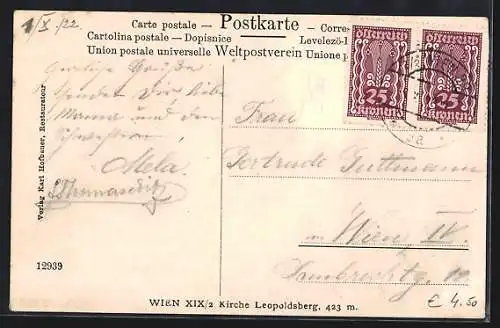 1/X. 22.
Carte postale — Postkarte — Corres
Cartolina postale — Dopisnice Levelező-l
Union postale universelle Weltpostverein Unione p
Österreich Österreich
25 25
Kronen Kronen
WIEN
Herzliche Grüße
sendet Dir liebe
Mama und den
Schwestern
Mela.
Frau
Gertrude Guttmann
in Wien IV.
Lambrechtg. 12
Verlag Karl Hofbauer, Restaurateur
12939
WIEN XIX/2 Kirche Leopoldsberg, 423 m.
€ 4.50